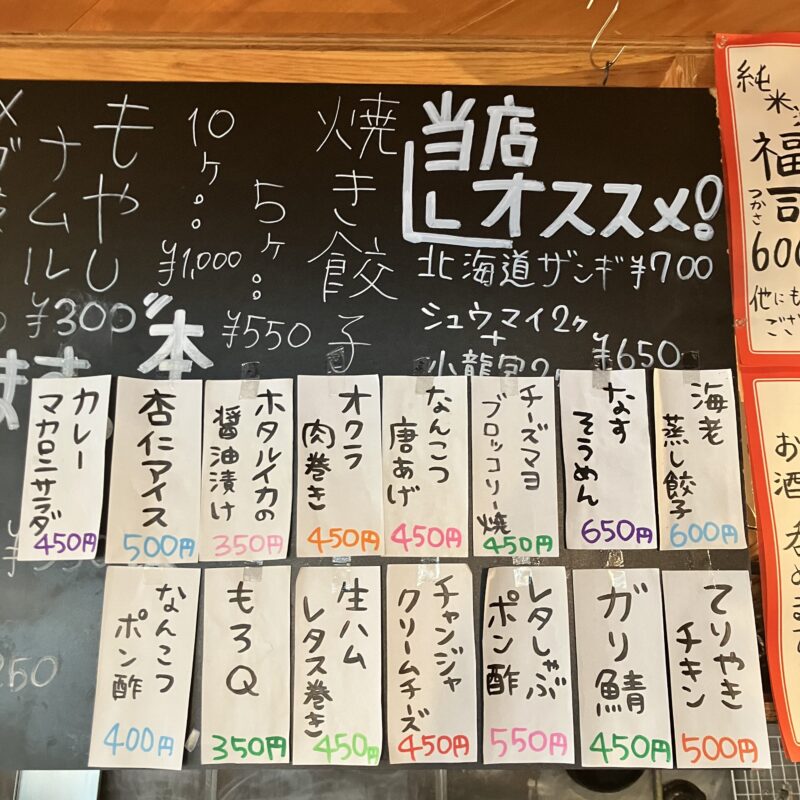 当店
オススメ!
北海道ザンギ ¥700
シュウマイ2ヶ
+
小龍包2
¥650
焼き餃子
5ヶ:
¥550
10ヶ:
¥1,000
もやし
ナムル
¥300
純米
福司
つかさ
600
他にも
ござ
お酒
海老
蒸し餃子
600円
なす
そうめん
650円
チーズマヨ
ブロッコリー焼
450円
なんこつ
唐あげ
450円
オクラ
肉巻き
450円
ホタルイカの
醤油漬け
350円
杏仁アイス
500円
カレー
マカロニサラダ
450円
てりやき
チキン
500円
ガリ鯖
450円
レタしゃぶ
ポン酢
550円
チャンジャ
クリームチーズ
450円
生ハム
レタス巻き
450円
もろQ
350円
なんこつ
ポン酢
400円